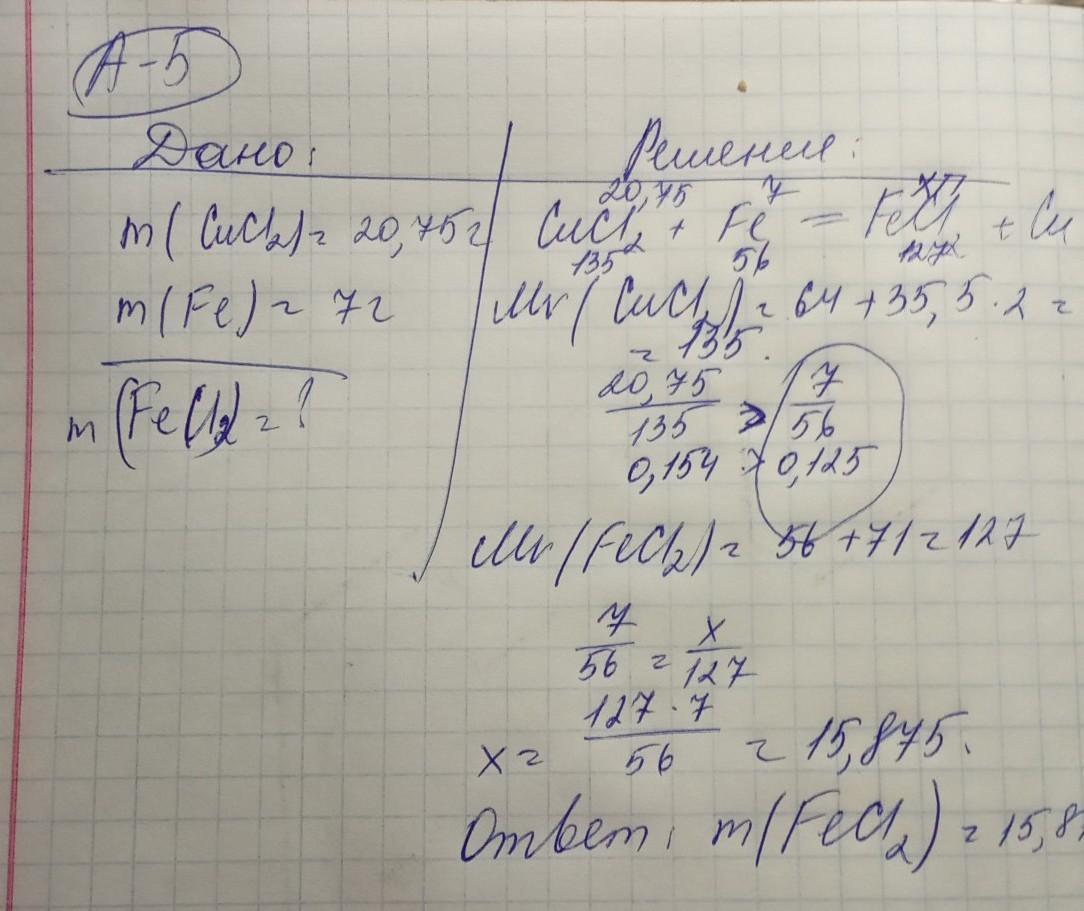 А-5
Дано:
m(CuCl2)= 20,75г
m(Fe)= 7г
m(FeCl2)=?
Решение:
20,75 7 x
CuCl2 + Fe = FeCl2 + Cu
135 56 127
Mr(CuCl2)= 64+35,5·2=
= 135.
20,75/135 > 7/56
0,154 > 0,125
Mr(FeCl2)= 56+71=127
7/56 = x/127
x= 127·7/56 = 15,875.
Ответ: m(FeCl2)=15,8